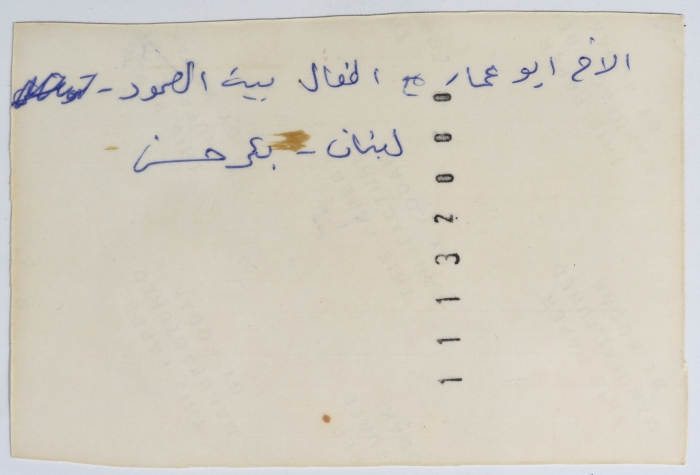 الاخ ابو عمار مع اطفال بيت الصمود -
لبنان - بئر حسن
11132000